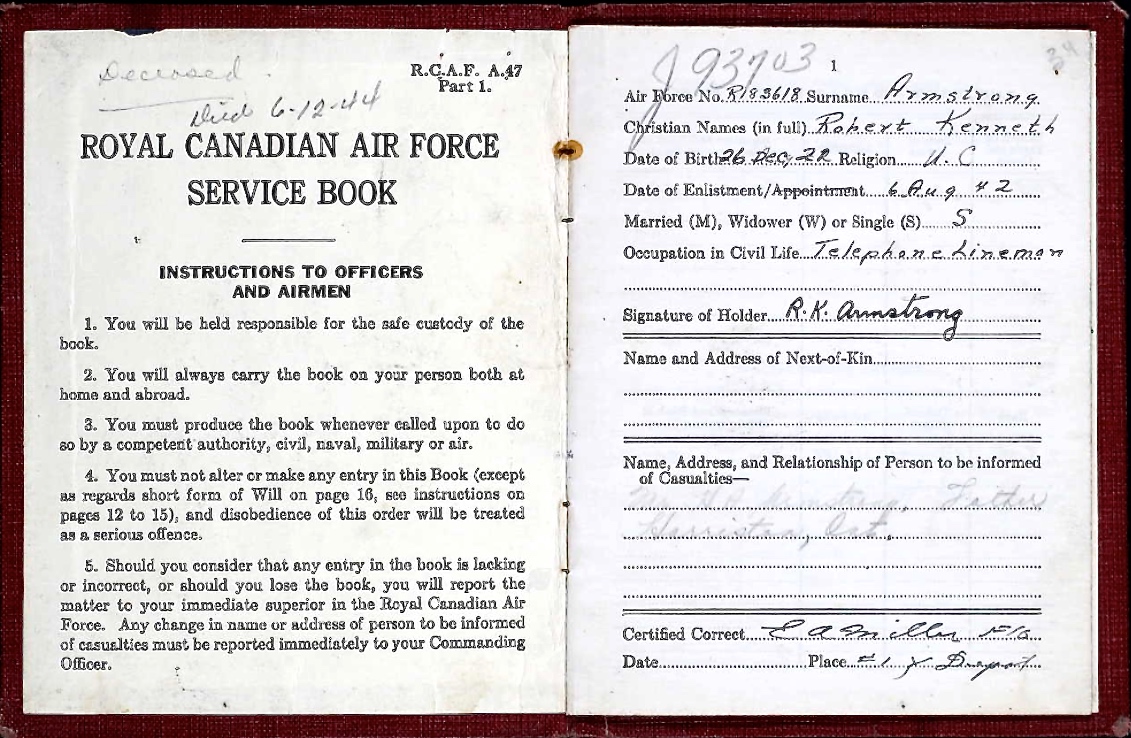 Deceased
Died 6-12-44
R.C.A.F. A.47
Part 1.
ROYAL CANADIAN AIR FORCE
SERVICE BOOK
INSTRUCTIONS TO OFFICERS
AND AIRMEN
1. You will be held responsible for the safe custody of the
book.
2. You will always carry the book on your person both at
home and abroad.
3. You must produce the book whenever called upon to do
so by a competent authority, civil, naval, military or air.
4. You must not alter or make any entry in this Book (except
as regards short form of Will on page 16, see instructions on
pages 12 to 15), and disobedience of this order will be treated
as a serious offence.
5. Should you consider that any entry in the book is lacking
or incorrect, or should you lose the book, you will report the
matter to your immediate superior in the Royal Canadian Air
Force. Any change in name or address of person to be informed
of casualties must be reported immediately to your Commanding
Officer.
J93703
1
Air Force No. R183618 Surname Armstrong
Christian Names (in full) Robert Kenneth
Date of Birth 26 Dec, 22 Religion U.C
Date of Enlistment/Appointment 6 Aug 42
Married (M), Widower (W) or Single (S) S
Occupation in Civil Life Telephone Lineman
Signature of Holder R.K. Armstrong
Name and Address of Next-of-Kin
Name, Address, and Relationship of Person to be informed
of Casualties—
Armstrong, Father
Harriston, Ont.
Certified Correct E A Miller F/O
Date Place #1 Y Depot